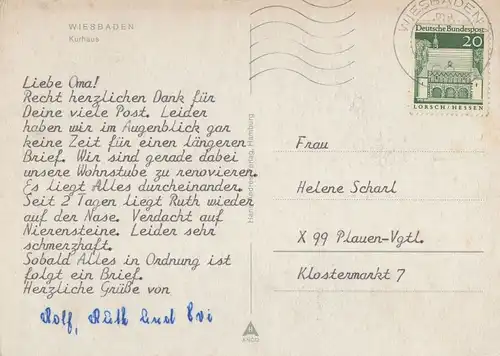 WIESBADEN
Kurhaus
Liebe Oma!
Recht herzlichen Dank für
Deine viele Post. Leider
haben wir im Augenblick gar
keine Zeit für einen längeren
Brief. Wir sind gerade dabei
unsere Wohnstube zu renovieren.
Es liegt Alles durcheinander.
Seit 2 Tagen liegt Ruth wieder
auf der Nase. Verdacht auf
Nierensteine. Leider sehr
schmerzhaft.
Sobald Alles in Ordnung ist
folgt ein Brief.
Herzliche Grüße von
Rolf, Ruth und Evi
Hamburg
WIESBADEN
Deutsche Bundespost
20
LORSCH/HESSEN
Frau
Helene Scharl
X 99 Plauen-Vgtl.
Klostermarkt 7